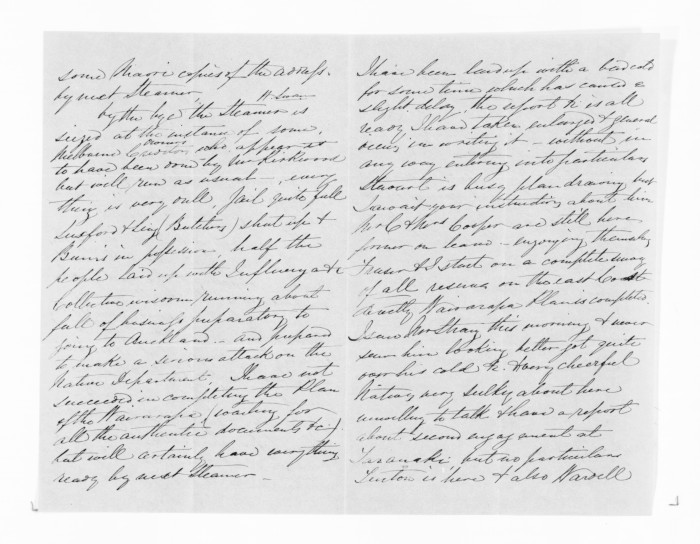 some Maori copies of the address.
by next Steamer,
by the bye the Steamer is
seized at the instance of some
Melbourne who appear
to have been done by Mr Kirkwood
but will run as usual every
thing is very dull, Jail quite full
& Ling (Butchers) shut up &
Burns in possession half the
people laid up with Influenza &c
Collective wisdom running about
full of business preparatory to
going to Auckland — and prepared
to make a serious attack on the
Native Department, I have not
succeeded in completing the Plan
of the Wairarapa (waiting for
all the authentic documents &c)
but will certainly have everything
ready by next Steamer —
I have been laid up with a bad cold
for some time which has caused a
slight delay, the report &c is all
ready I have taken enlarged & general
in writing it — without in
any way entering into particulars
Stewart is busy plan drawing but
I await your instructions about him
Mr C & Mrs Cooper are still here
former on leave — enjoying themselves
Fraser & I start on a complete survey
of all reserves on the East Coast
directly Wairarapa Plan is completed.
I saw Mr Strang this morning & never
seen him looking better got quite
over his cold &c & very cheerful
Natives very sulky about here
unwilling to talk & have a report
about second engagement at
Taranaki but no particulars
is here & also Wardell